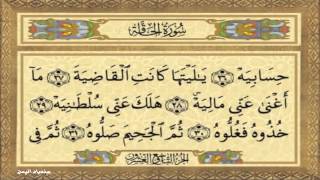 سُورَةُ الْحَاقَّةِ
حِسَابِيَهْ ٢٦ يَٰلَيْتَهَا كَانَتِ ٱلْقَاضِيَةَ ٢٧ مَآ
أَغْنَىٰ عَنِّى مَالِيَهْ ٢٨ هَلَكَ عَنِّى سُلْطَٰنِيَهْ ٢٩
خُذُوهُ فَغُلُّوهُ ٣٠ ثُمَّ ٱلْجَحِيمَ صَلُّوهُ ٣١ ثُمَّ فِى
الجزء التاسع والعشرون